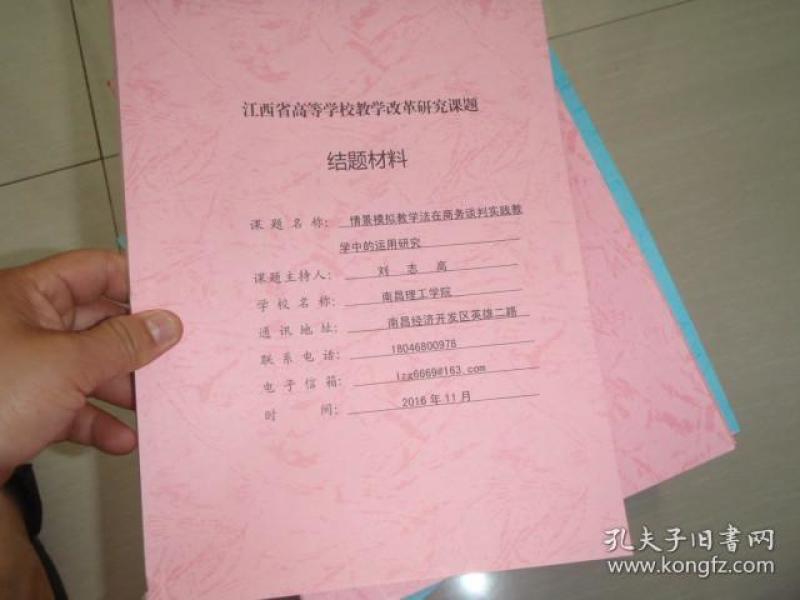 江西省高等学校教学改革研究课题
结题材料
课题名称：情景模拟教学法在商务谈判实践教
学中的运用研究
课题主持人：刘志高
学校名称：南昌理工学院
通讯地址：南昌经济开发区英雄二路
联系电话：18046800978
电子信箱：lzg6669@163.com
时间：2016年11月
孔夫子旧书网
www.kongfz.com